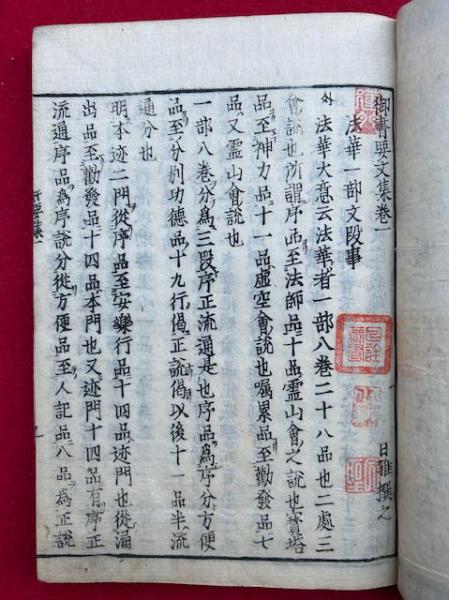 御書要文集巻一
日雅撰之
法華一部文段事
外 法華大意云法華者一部八巻二十八品也二處三
會說也所謂序品至法師品十品霊山會之說也寳塔
品至神力品十一品虚空會說也嘱累品至勸發品七
品又霊山會說也
一部八巻分為三段序正流通是也序品為序分方便
品至分別功德品十九行偈正說偈以後十一品半流
通分也
明本迹二門從序品至安樂行品十四品迹門也從涌
出品至勸發品十四品本門也又迹門十四品有序正
流通序品為序說分從方便品至人記品八品為正說